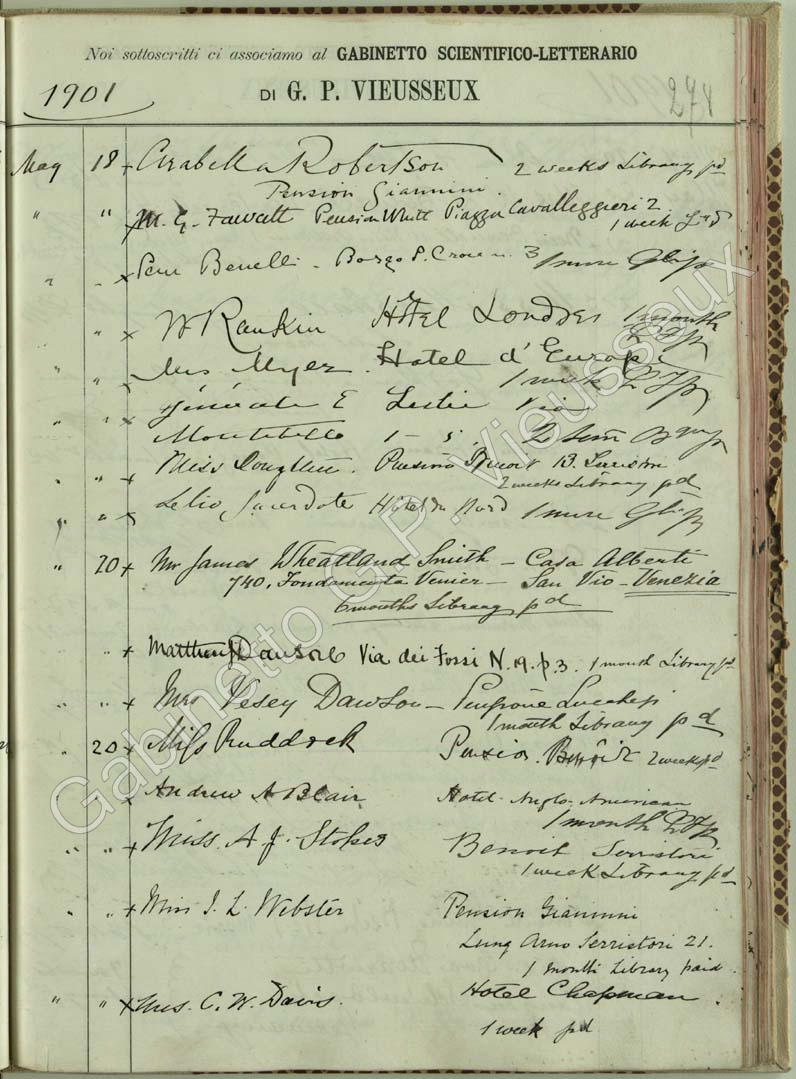 Noi sottoscritti ci associamo al GABINETTO SCIENTIFICO-LETTERARIO
1901
DI G. P. VIEUSSEUX
278
Mag 18 + Arabella Robertson 2 weeks Library pd
Pension Giannini.
" " M. G. Fawcett Pension White Piazza Cavalleggieri 2
1 week
" " x Benelli - Borgo S. Croce n. 3
" x W Rankin Hôtel Londres 1 month
" Mrs Myer Hotel d'Europe
1 week
" " x E Leslie Via
Montebello 1 - 5.
" " Miss 13. Serristori
2 weeks Library pd
" " x Lelio Sacerdote Hôtel du Nord
" 20 + Mr James Wheatland Smith - Casa Alberti
740, Fondamenta Venier - San Vio - Venezia
6 months Library pd
" + Matthew Via dei Fossi N. 19. p. 3. 1 month Library pd
" " + Mrs Vesey Dawson - Pensione Lucchesi
1 month Library pd
" 20 + Miss Ruddock Pension Benoit 2 week pd
" " + Andrew A Blair Hotel Anglo-American
1 month
" " + Miss A. J. Stokes Benoit Serristori
1 week Library pd
" " + Miss I. L. Webster Pension Giannini
Lung Arno Serristori 21.
1 month Library paid.
" " x Mrs. C. W. Davis. Hotel Chapman
1 week pd
Gabinetto G.P. Vieusseux